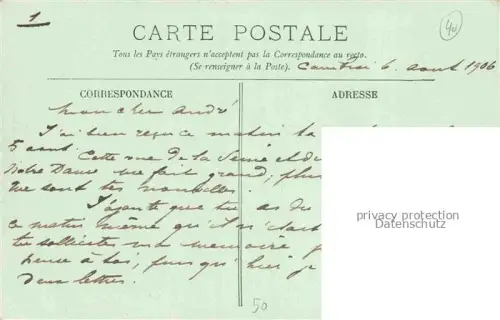 1
40
CARTE POSTALE
Tous les Pays étrangers n'acceptent pas la Correspondance au recto.
(Se renseigner à la Poste).
Cambrai 6 août 1906
CORRESPONDANCE
ADRESSE
Mon cher André
J'ai bien reçu ce matin ta
5 août. Cette vue de la Seine et de
Notre Dame me fait grand plai
que sont tes nouvelles.
J'ajoute que tu as du
ce matin même qu'il n'était
tu sollicites ma mémoire p
pense à toi, puis qu'hier je
deux lettres.
privacy protection
Datenschutz
50